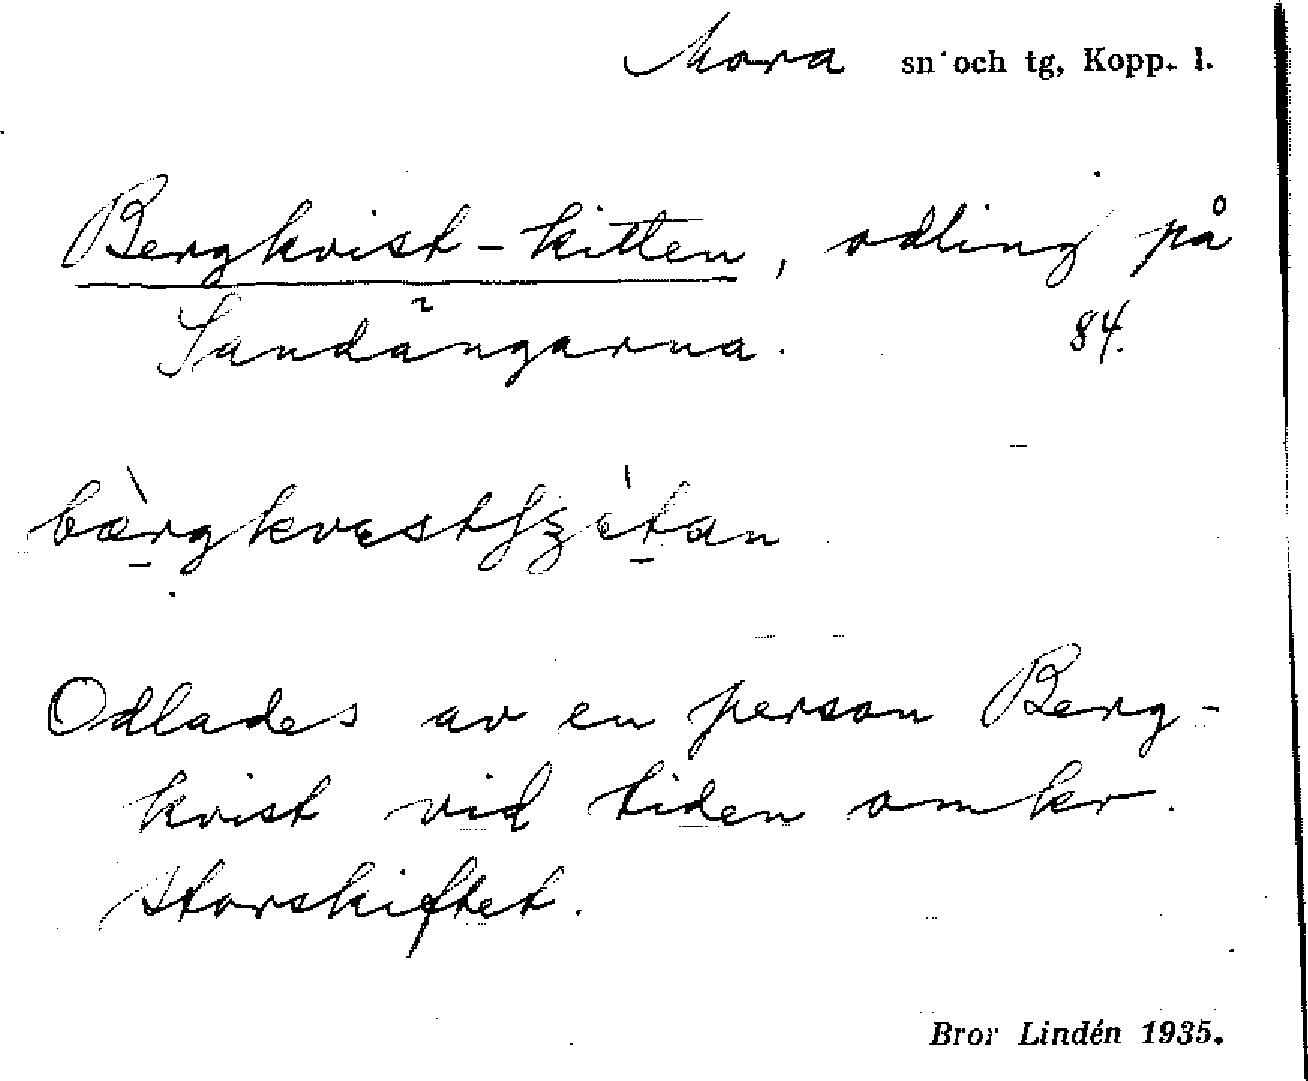 Mora sn och tg, Kopp. l.
Bergkvist-kitten, odling på
Sandängarna. 84.
Odlades av en person Berg-
kvist vid tiden omkr.
Storskiftet.
Bror Lindén 1935.